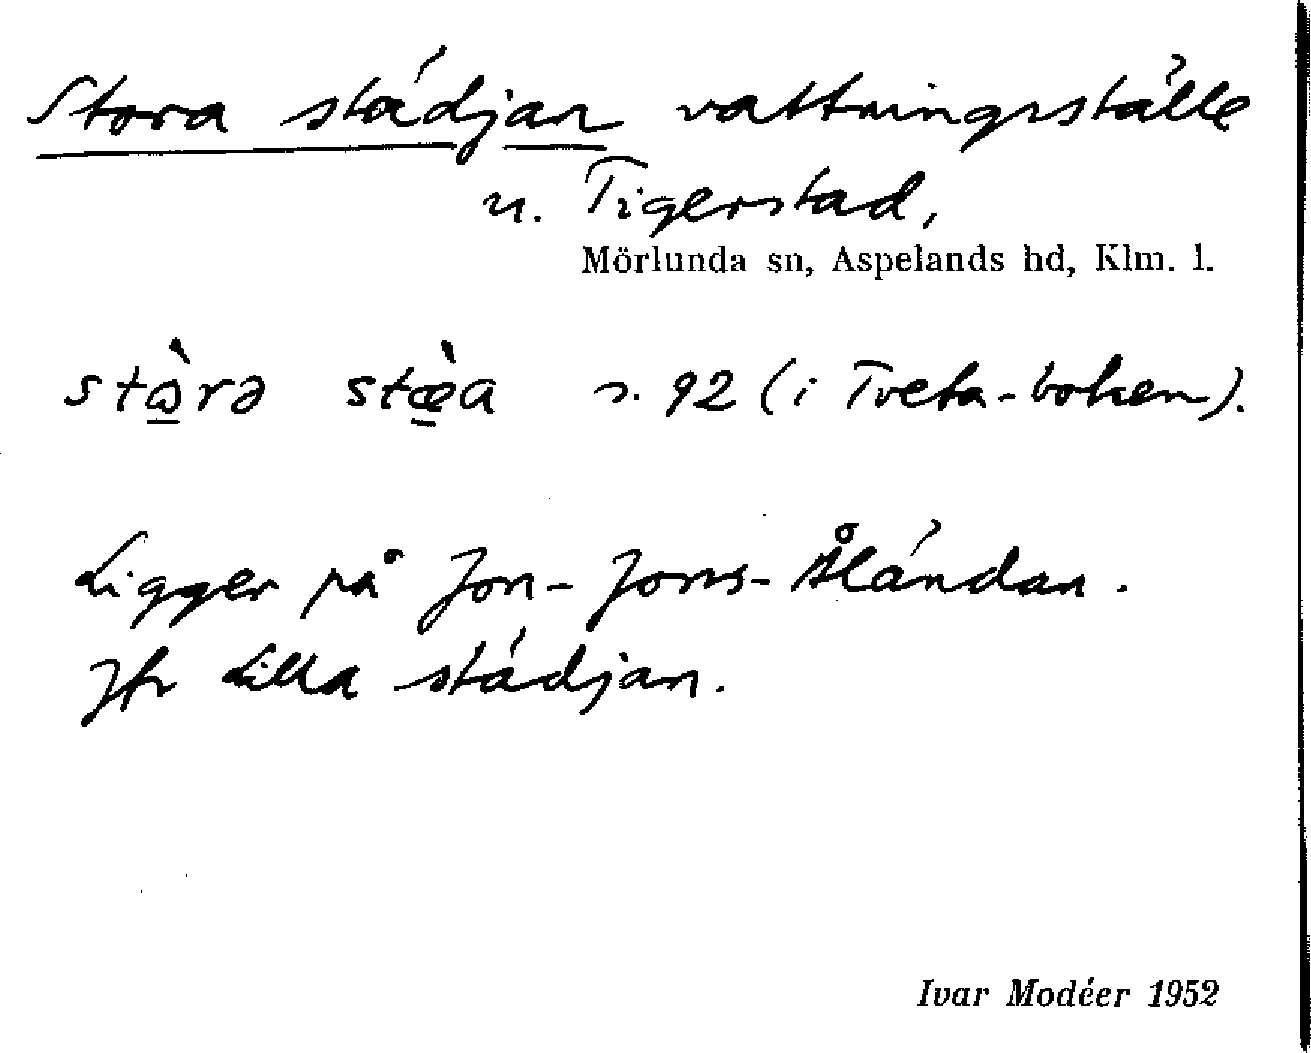 Stora städjan vattningsställe
u. Tigerstad,
Mörlunda sn, Aspelands hd, Klm. l.
stɷ̀rə stæ̀a s. 92 (i Tveta-boken).
Ligger på Jon-Jons-Åländan.
Jfr Lilla städjan.
Ivar Modéer 1952